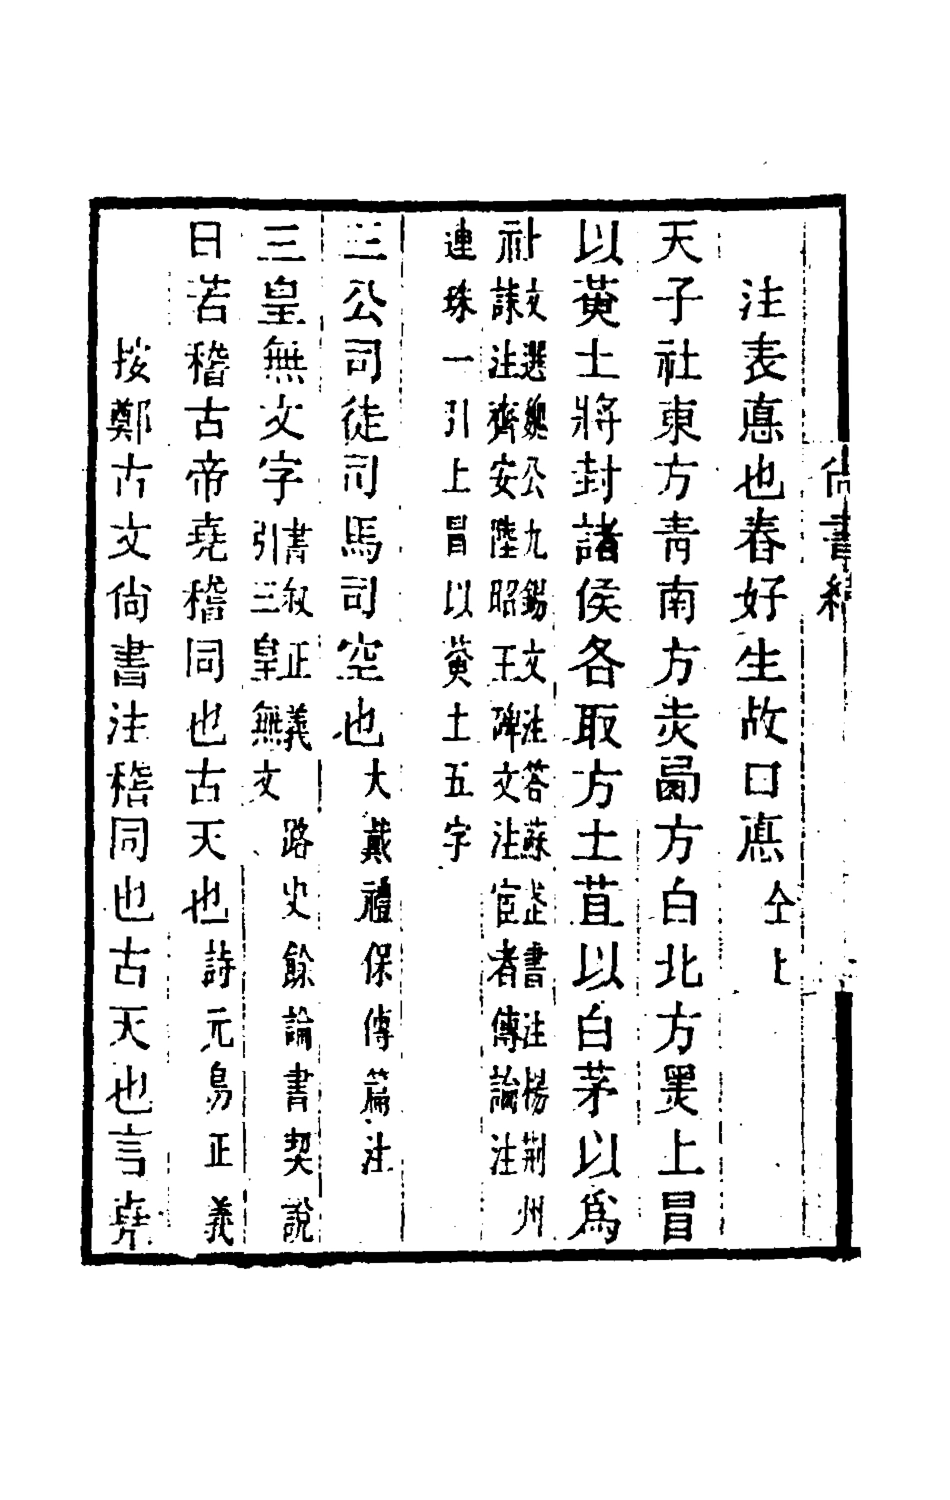 尚書緯
注表悳也春好生故曰悳仝上
天子社東方青南方赤西方白北方黑上冒
以黄土將封諸侯各取方土苴以白茅以爲
社文選魏公九錫文注答蘇武書注楊荆州
誄注齊安陸昭王碑文注宦者傳論注
連珠一引上冒以黄土五字
三公司徒司馬司空也大戴禮保傅篇注
三皇無文字書叙正義
引三皇無文
路史餘論書契說
曰若稽古帝堯稽同也古天也詩元鳥正義
按鄭古文尚書注稽同也古天也言堯